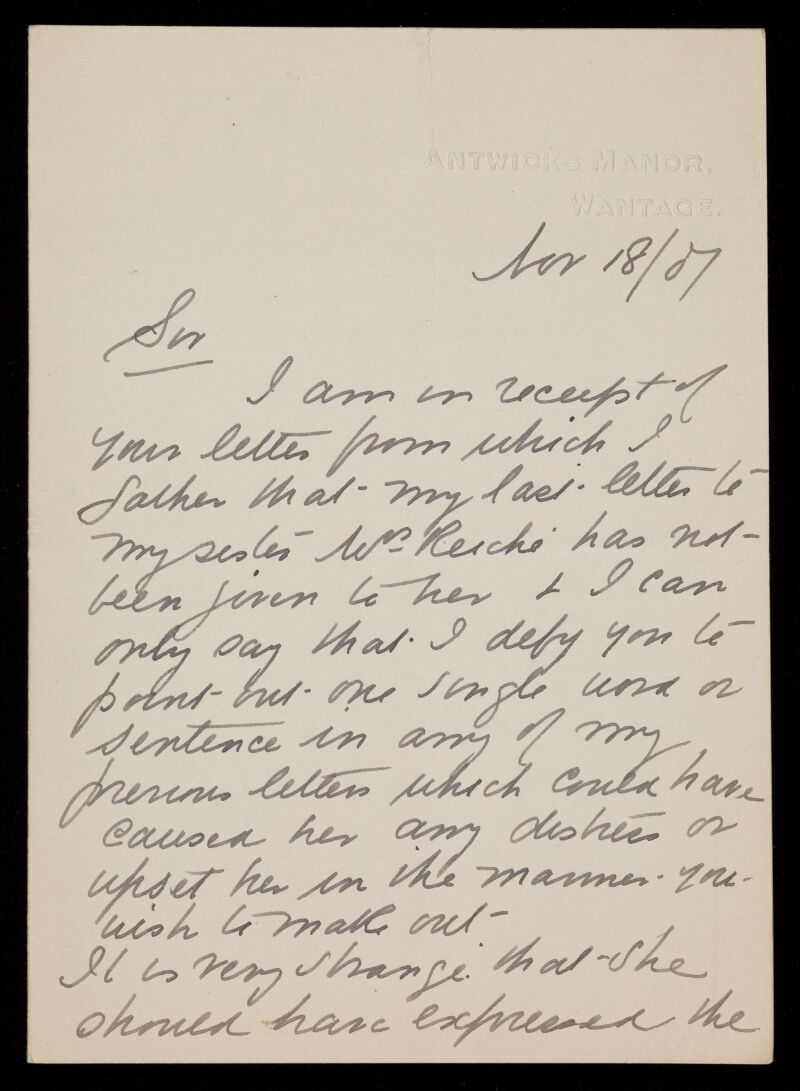 ANTWICKS MANOR,
WANTAGE.
Nov 18/87
Sir
I am in receipt of
your letter from which I
gather that my last letter to
my sister Mrs Reiché has not
been given to her & I can
only say that I defy you to
point out one single word or
sentence in any of my
previous letters which could have
caused her any distress or
upset her in the manner you
wish to make out
It is very strange that she
should have expressed the